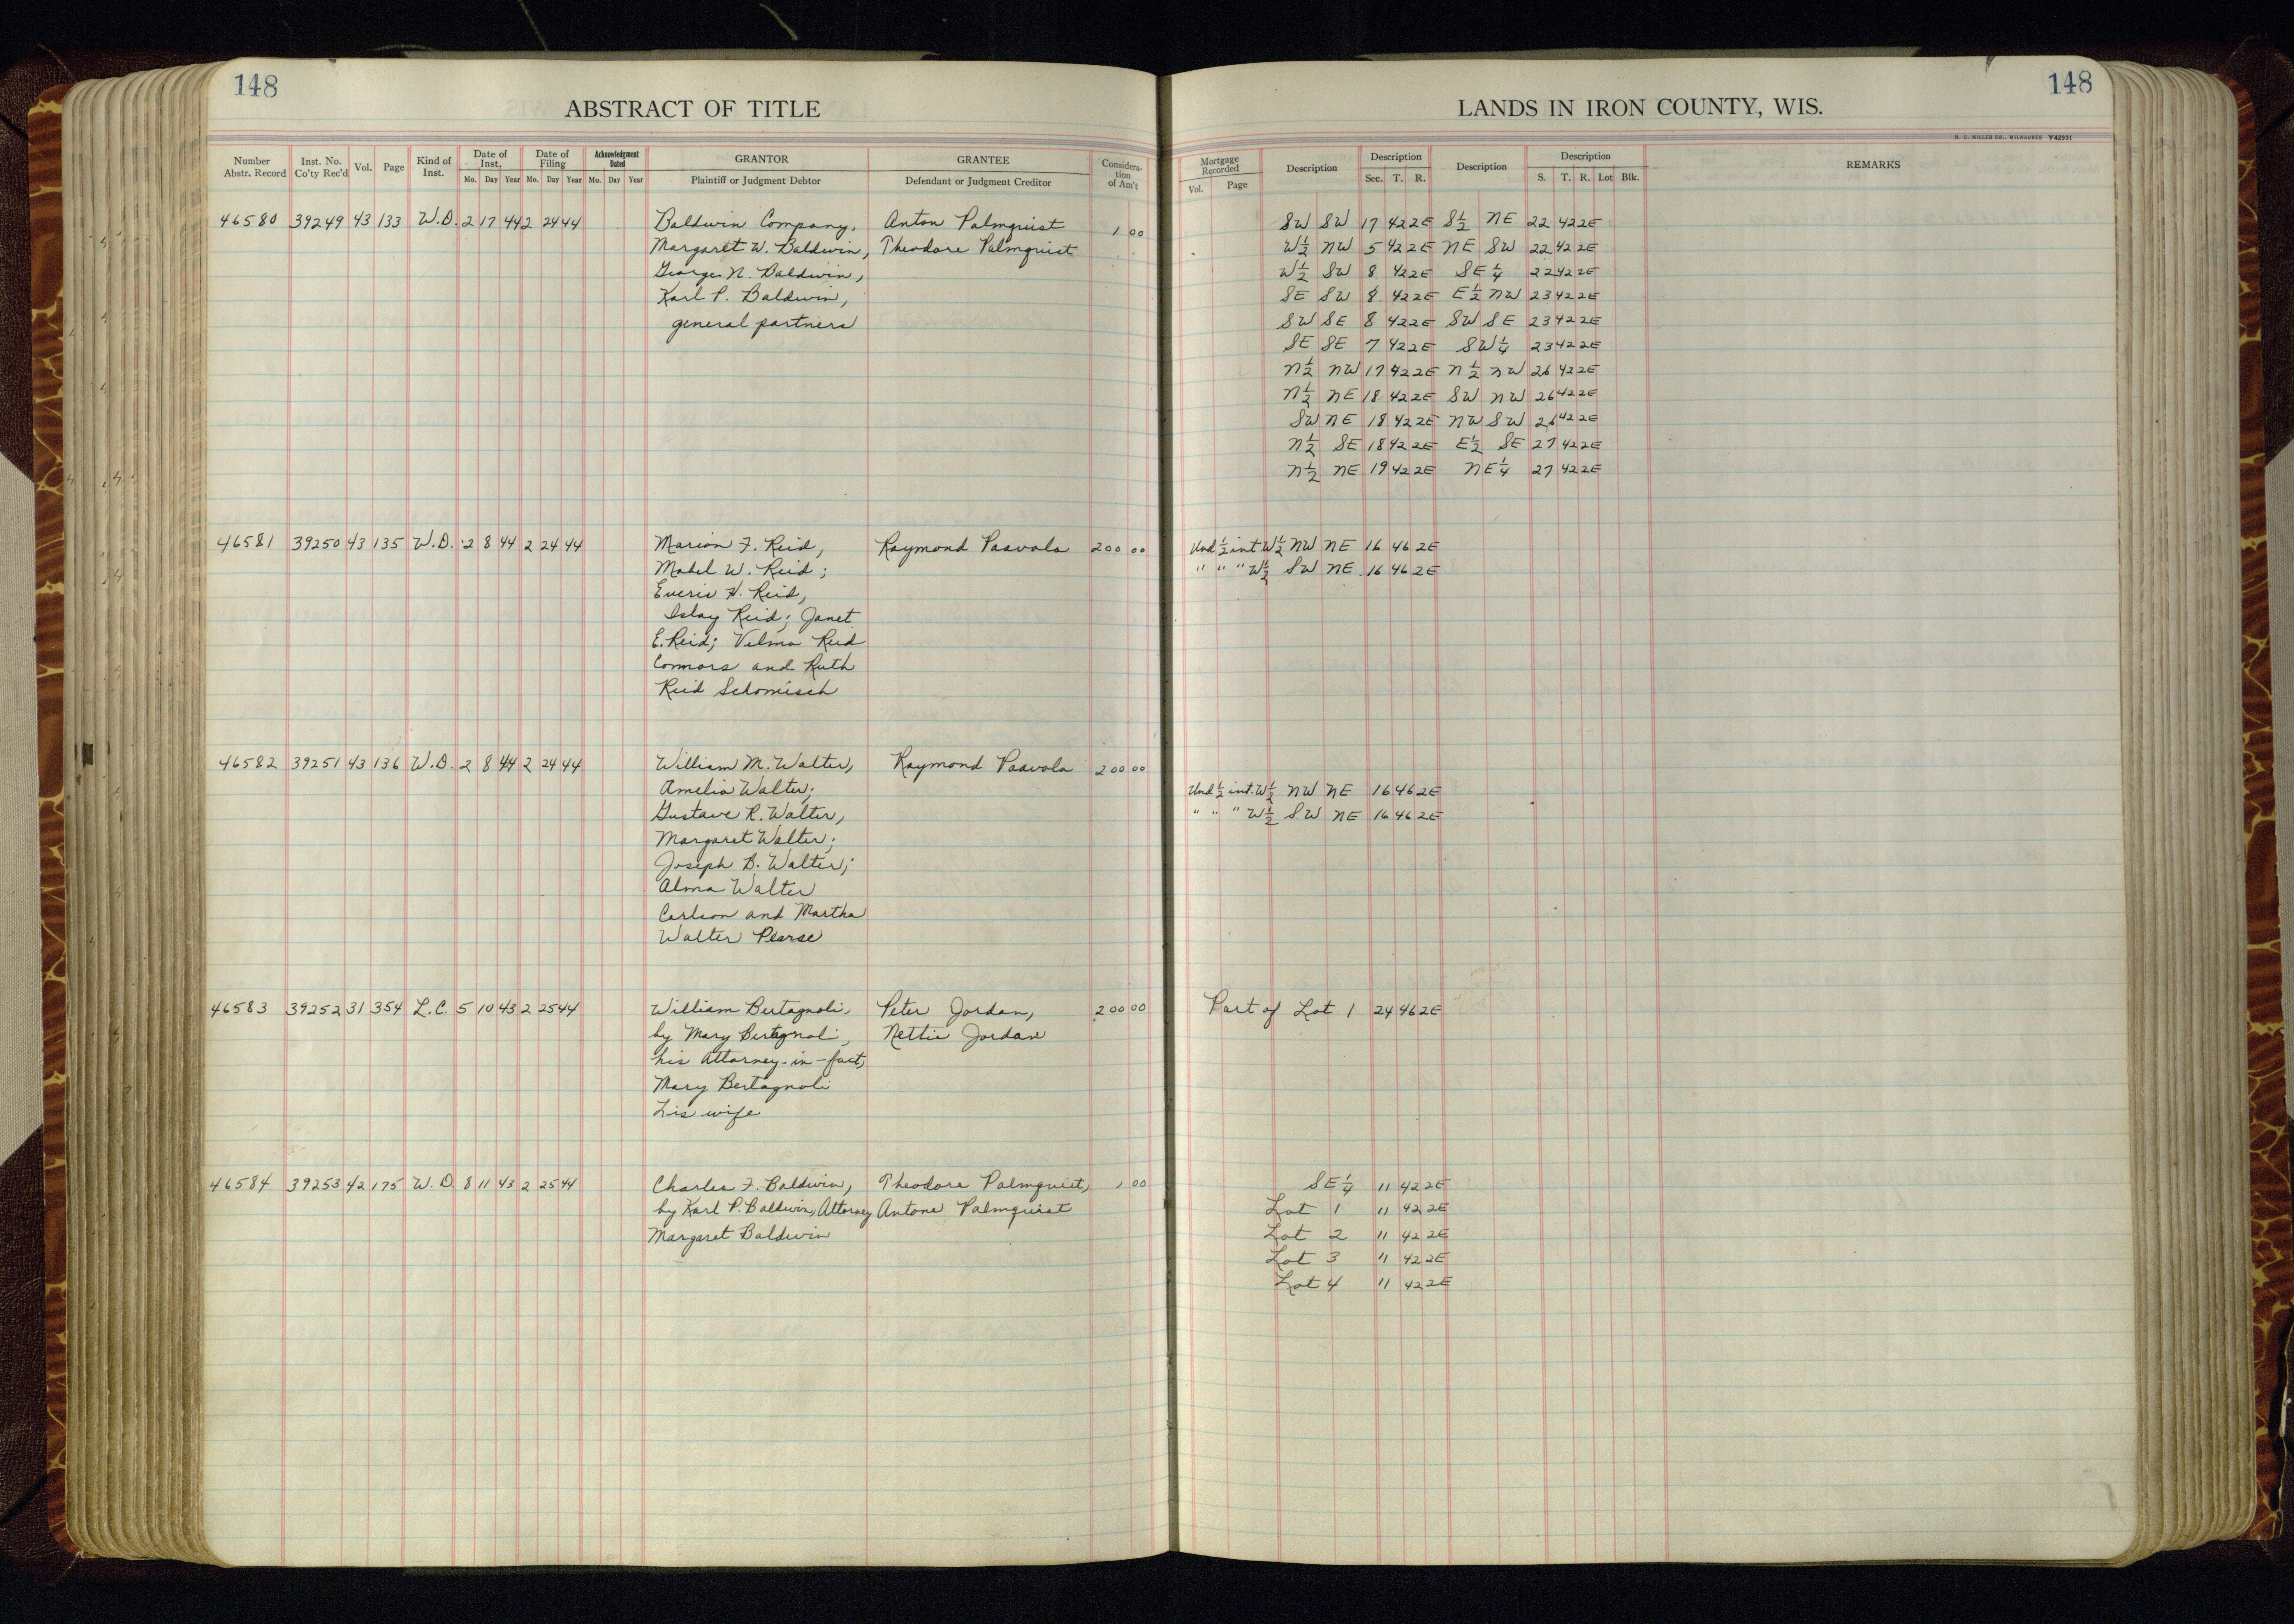 148
148
ABSTRACT OF TITLE
LANDS IN IRON COUNTY, WIS.
H. C. MILLER CO., MILWAUKEE Y42931
Number Abstr. Record | Inst. No. Co'ty Rec'd | Vol. | Page | Kind of Inst. | Date of Inst. Mo. Day Year | Date of Filing Mo. Day Year | Acknowledgment Dated Mo. Day Year | GRANTOR Plaintiff or Judgment Debtor | GRANTEE Defendant or Judgment Creditor | Considera- tion of Am't
Mortgage Recorded Vol. Page | Description | Description Sec. T. R. | Description | Description S. T. R. Lot Blk. | REMARKS
46580 39249 43 133 W.D. 2 17 44 2 24 44 Baldwin Company, Anton Palmquist 1 00 SW SW 17 42 2E S½ NE 22 42 2E
Margaret W. Baldwin, Theodore Palmquist W½ NW 5 42 2E NE SW 22 42 2E
George N. Baldwin, W½ SW 8 42 2E SE¼ 22 42 2E
Karl P. Baldwin, SE SW 8 42 2E E½ NW 23 42 2E
general partners SW SE 8 42 2E SW SE 23 42 2E
SE SE 7 42 2E SW¼ 23 42 2E
N½ NW 17 42 2E N½ NW 26 42 2E
N½ NE 18 42 2E SW NW 26 42 2E
SW NE 18 42 2E NW SW 26 42 2E
N½ SE 18 42 2E E½ SE 27 42 2E
N½ NE 19 42 2E NE¼ 27 42 2E
46581 39250 43 135 W.D. 2 8 44 2 24 44 Marion F. Reid, Raymond Paavola 200 00 Und ½ int W½ NW NE 16 46 2E
Mabel W. Reid; " " " W½ SW NE 16 46 2E
H. Reid,
Islay Reid; Janet
E. Reid; Velma Reid
Connors and Ruth
Reid Schomisch
46582 39251 43 136 W.D. 2 8 44 2 24 44 William M. Walter, Raymond Paavola 200 00
Amelia Walter; Und ½ int. W½ NW NE 16 46 2E
Gustave R. Walter, " " " W½ SW NE 16 46 2E
Margaret Walter;
Joseph B. Walter;
Alma Walter
Carlson and Martha
Walter Pearse
46583 39252 31 354 L.C. 5 10 43 2 25 44 William Bertagnoli, Peter Jordan, 200 00 Part of Lot 1 24 46 2E
by Mary Bertagnoli, Nettie Jordan
his Attorney-in-fact,
Mary Bertagnoli
his wife
46584 39253 42 175 W.D. 8 11 43 2 25 44 Charles F. Baldwin, Theodore Palmquist, 1 00 SE¼ 11 42 2E
by Karl P. Baldwin, Attorney Antone Palmquist Lot 1 11 42 2E
Margaret Baldwin Lot 2 11 42 2E
Lot 3 11 42 2E
Lot 4 11 42 2E